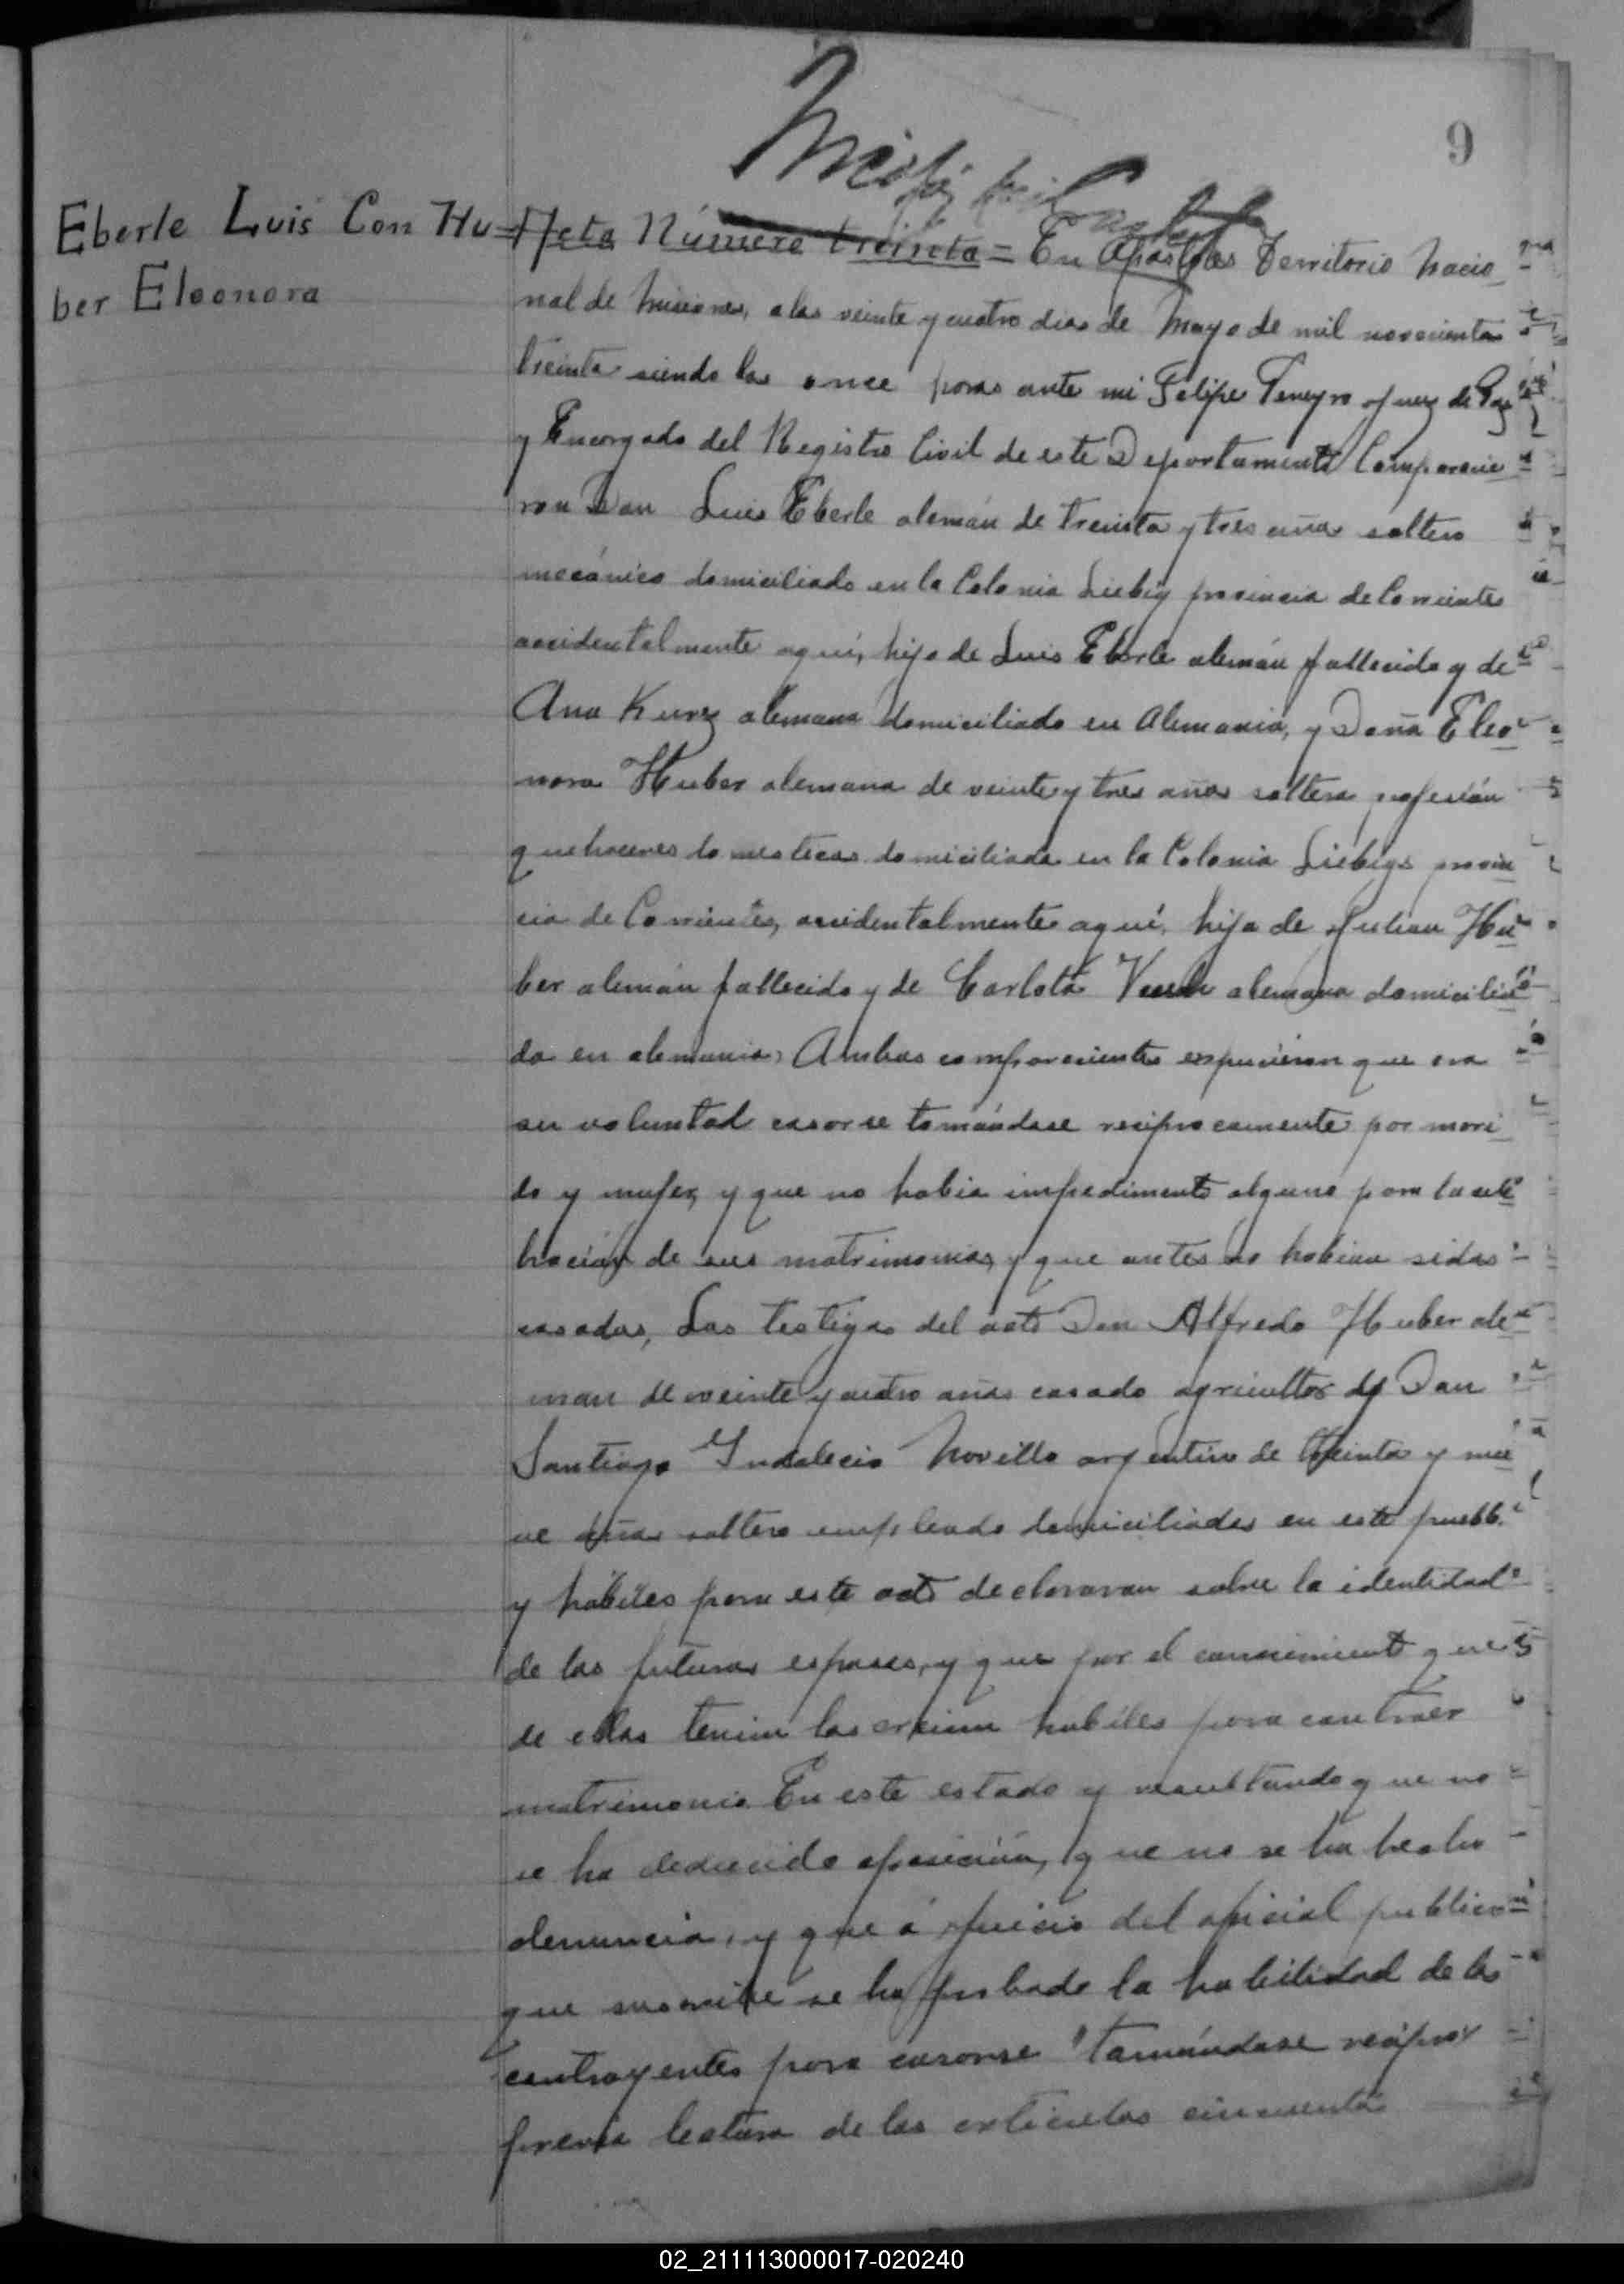 9
Eberle Luis Con Hu=
ber Eleonora
Acta Número treinta = En Apóstoles Territorio Nacio
nal de Misiones, a los veinte y cuatro dias de Mayo de mil novecientos
treinta siendo las once horas ante mi Felipe Juez de Paz
y Encargado del Registro Civil de este Departamento Comparecie
ron Don Luis Eberle alemán de treinta y tres años soltero
mecánico domiciliado en la Colonia Liebig provincia de Corrientes
accidentalmente aquí, hijo de Luis Eberle alemán fallecido y de
Ana Kurz alemana domiciliado en Alemania, y Doña Eleo
nora Huber alemana de veinte y tres años soltera profesión
quehaceres domesticos domiciliada en la Colonia Liebigs provin
cia de Corrientes, accidentalmente aquí, hija de Julian Hu
ber alemán fallecido y de Carlota alemana domicilia
da en alemania: Ambos comparecientes expusieron que era
su voluntad casarse tomándose reciprocamente por mari
do y mujer, y que no habia impedimento alguno para la cele
bración de sus matrimonios, y que antes no habian sidos
casados, Los testigos del acto Don Alfredo Huber ale
man de veinte y cuatro años casado agricultor y Don
Santiago Indalecio Novillo argentino de treinta y nue
ve años soltero empleado domiciliados en este pueblo
y hábiles para este acto declararan sobre la identidad
de los futuros esposos, y que por el conocimiento que
de ellos tenian los creian habiles para contraer
matrimonio. En este estado y resultando que no
se ha deducido oposición, que no se ha hecho
denuncia, y que á juicio del oficial publico
que suscribe se ha probado la habilidad de los
contrayentes para casarse tomándose recipro
previa lectura de los articulos cincuenta
02_211113000017-020240